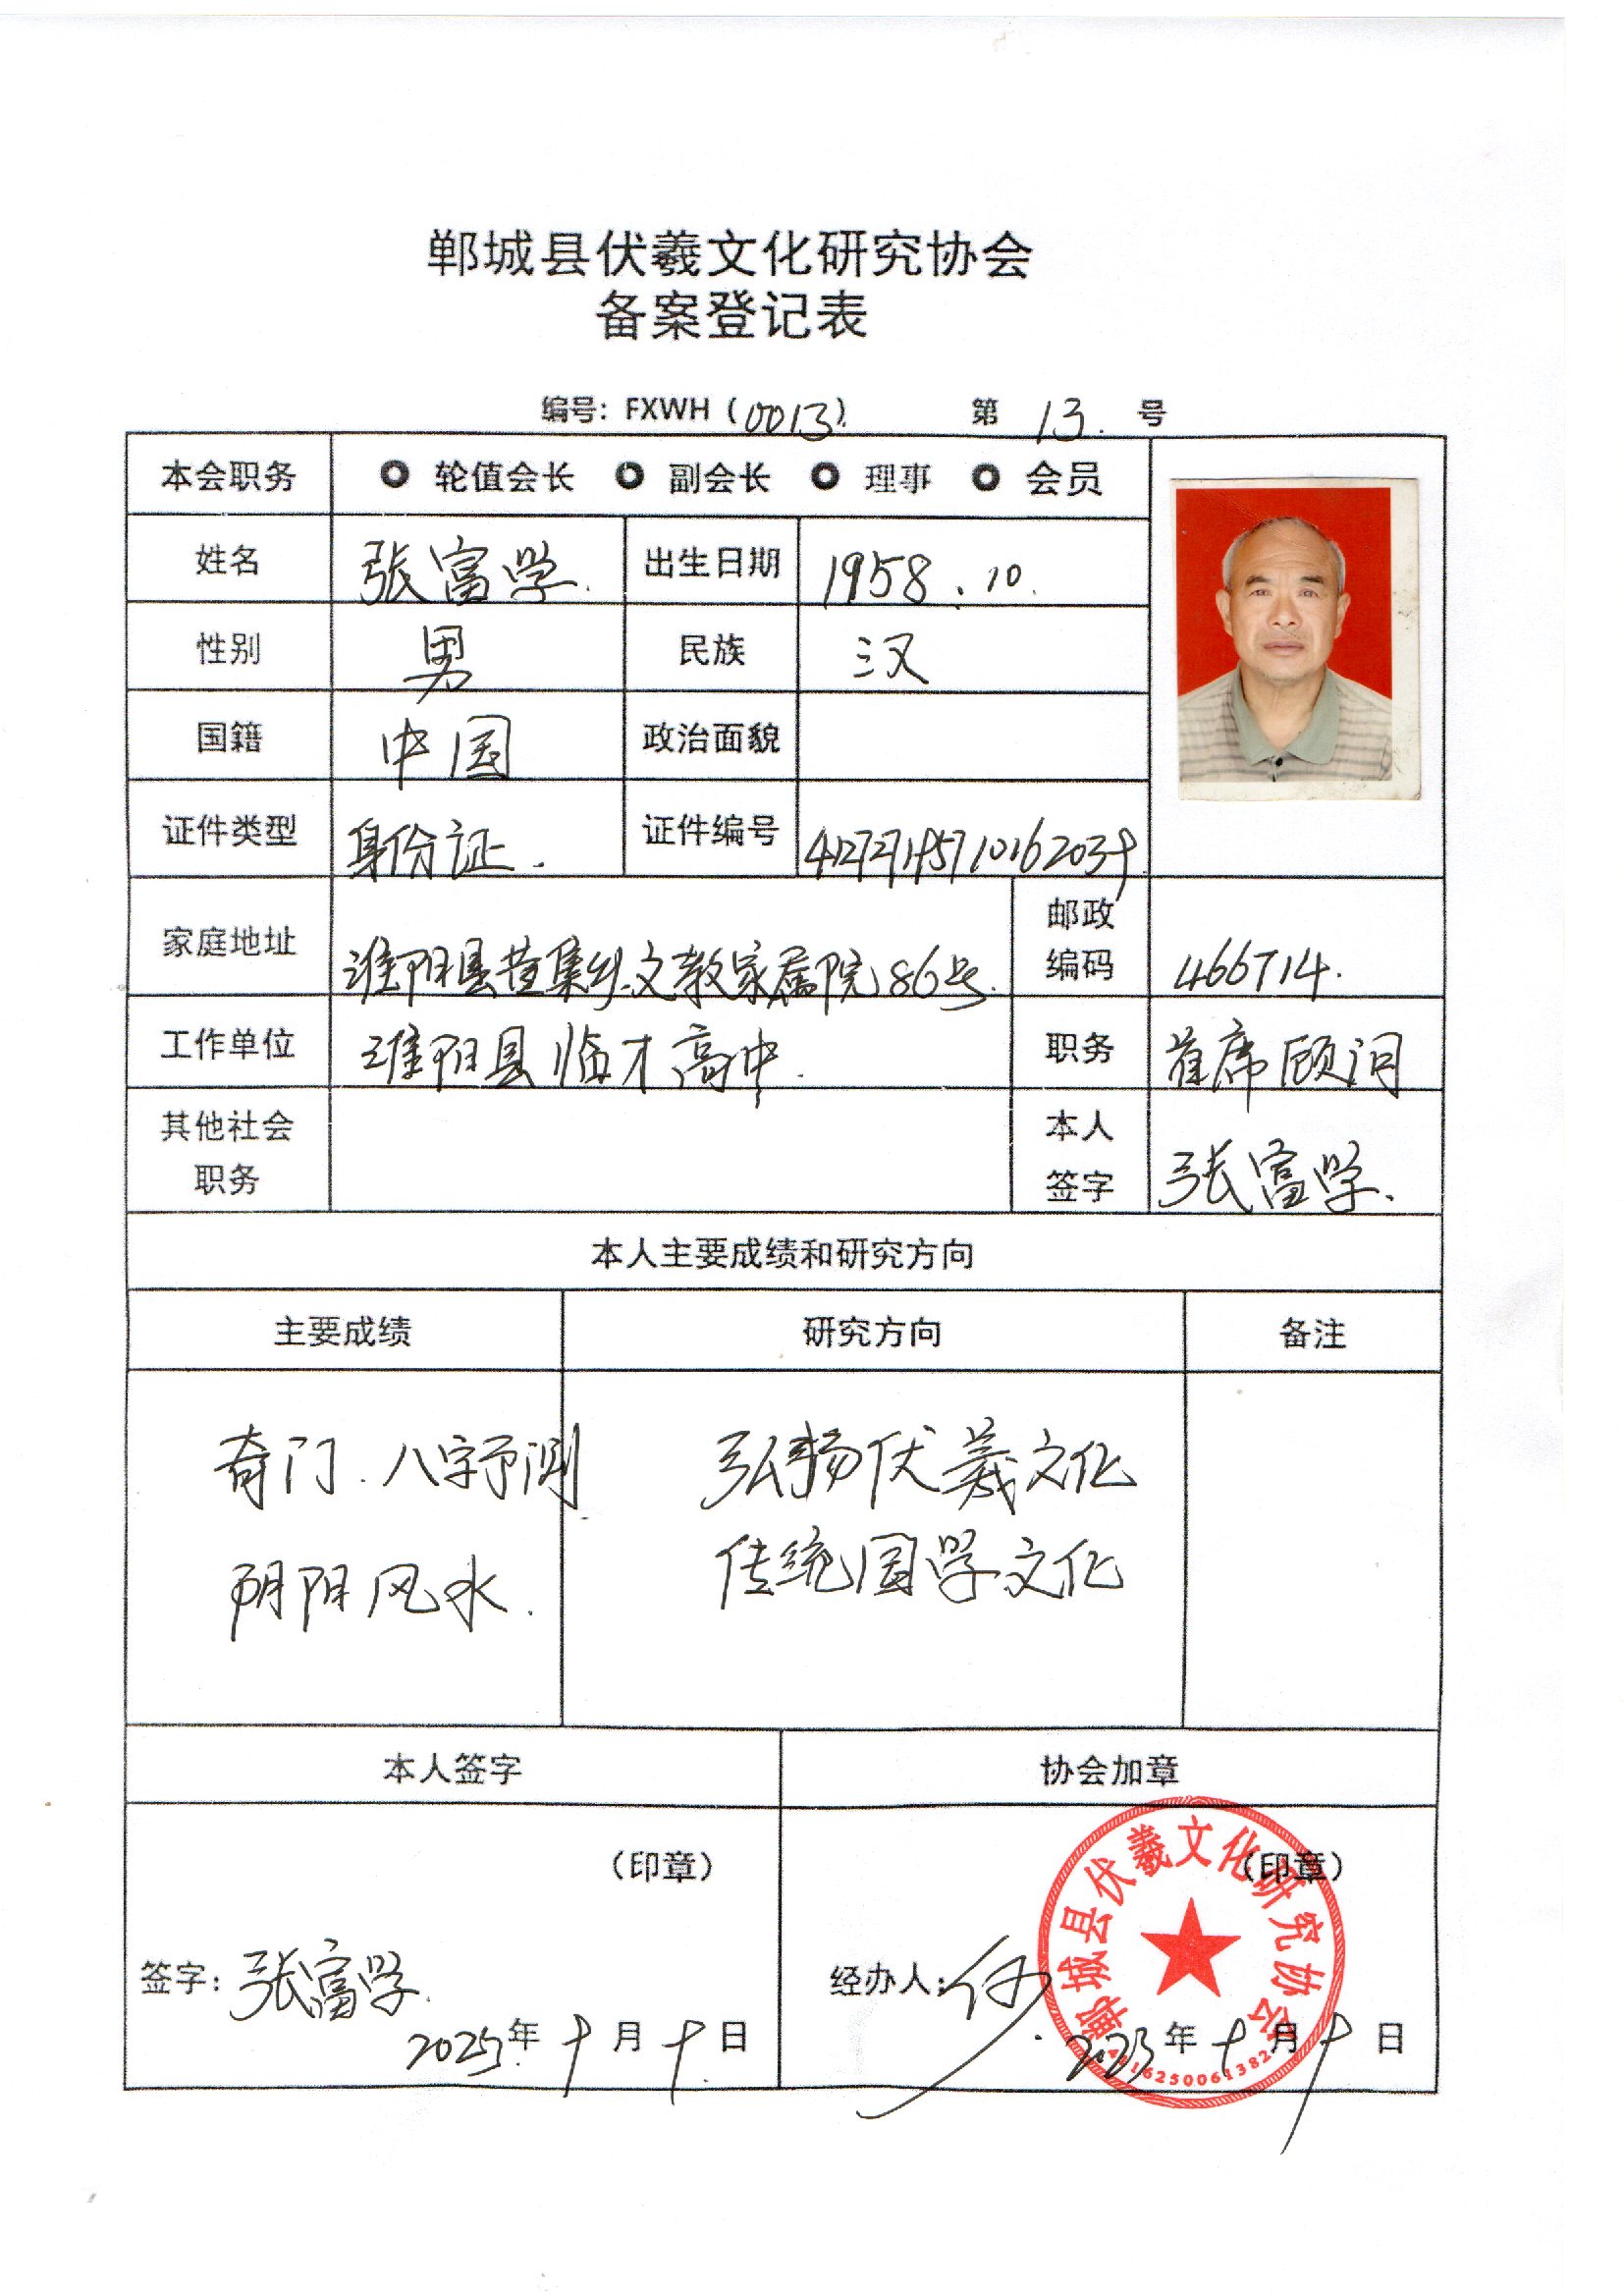 郸城县伏羲文化研究协会
备案登记表
编号：FXWH（0013） 第 13. 号
本会职务 轮值会长 副会长 理事 会员
姓名 张富学. 出生日期 1958.10.
性别 男 民族 汉
国籍 中国 政治面貌
证件类型 身份证. 证件编号
家庭地址 淮阳县黄集乡文教家属院86号. 邮政编码 466714.
工作单位 淮阳县临才高中. 职务 首席顾问
其他社会职务 本人签字 张富学.
本人主要成绩和研究方向
主要成绩 研究方向 备注
奇门.八字予测 弘扬伏羲文化
阴阳风水. 传统国学文化
本人签字 协会加章
（印章） （印章）
签字：张富学. 经办人：
年十月十日 年十月十日
郸城县伏羲文化研究协会